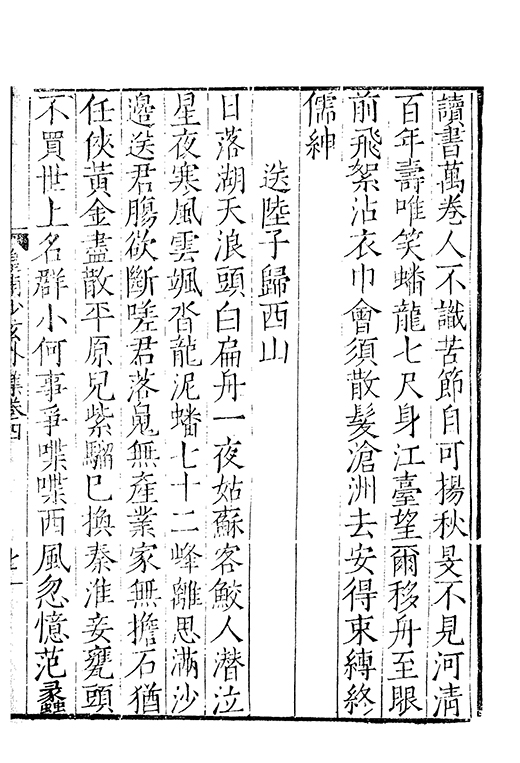 讀書萬卷人不識苦節自可揚秋旻不見河清
百年壽唯笑蟠龍七尺身江臺望爾移舟至眼
前飛絮沾衣巾會須散髮滄洲去安得束縛終
儒紳
送陸子歸西山
日落湖天浪頭白扁舟一夜姑蘇客鮫人潛泣
星夜寒風雲颯沓龍泥蟠七十二峰離思滿沙
邊送君腸欲斷嗟君落魄無產業家無擔石猶
任俠黃金盡散平原兄紫騮已換秦淮妾甕頭
不買世上名群小何事爭喋喋西風忽憶范蠡
外集卷四